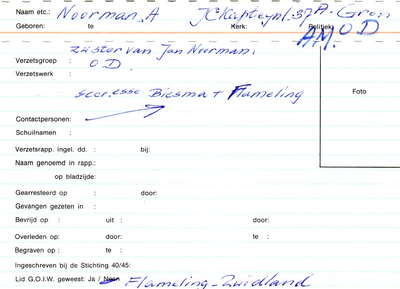 Naam etc.: Noorman, A JCKapteynl. 37A. Gron
Geboren: te Kerk: Politiek: O D
A.M.
zuster van Jan Noorman.
Verzetsgroep : O.D.
Verzetswerk
secr.esse Biesma + Flameling
Foto
Contactpersonen:
Schuilnaam :
Verzetsrapp. ingel. dd. : bij:
Naam genoemd in rapp.:
op bladzijde:
Gearresteerd op : door:
Gevangen gezeten in :
Bevrijd op : uit : door:
Overleden op: door: te :
Begraven op : te :
Ingeschreven bij de Stichting 40/45:
Lid G.O.I.W. geweest: Ja / Neen Flameling-Zuidland